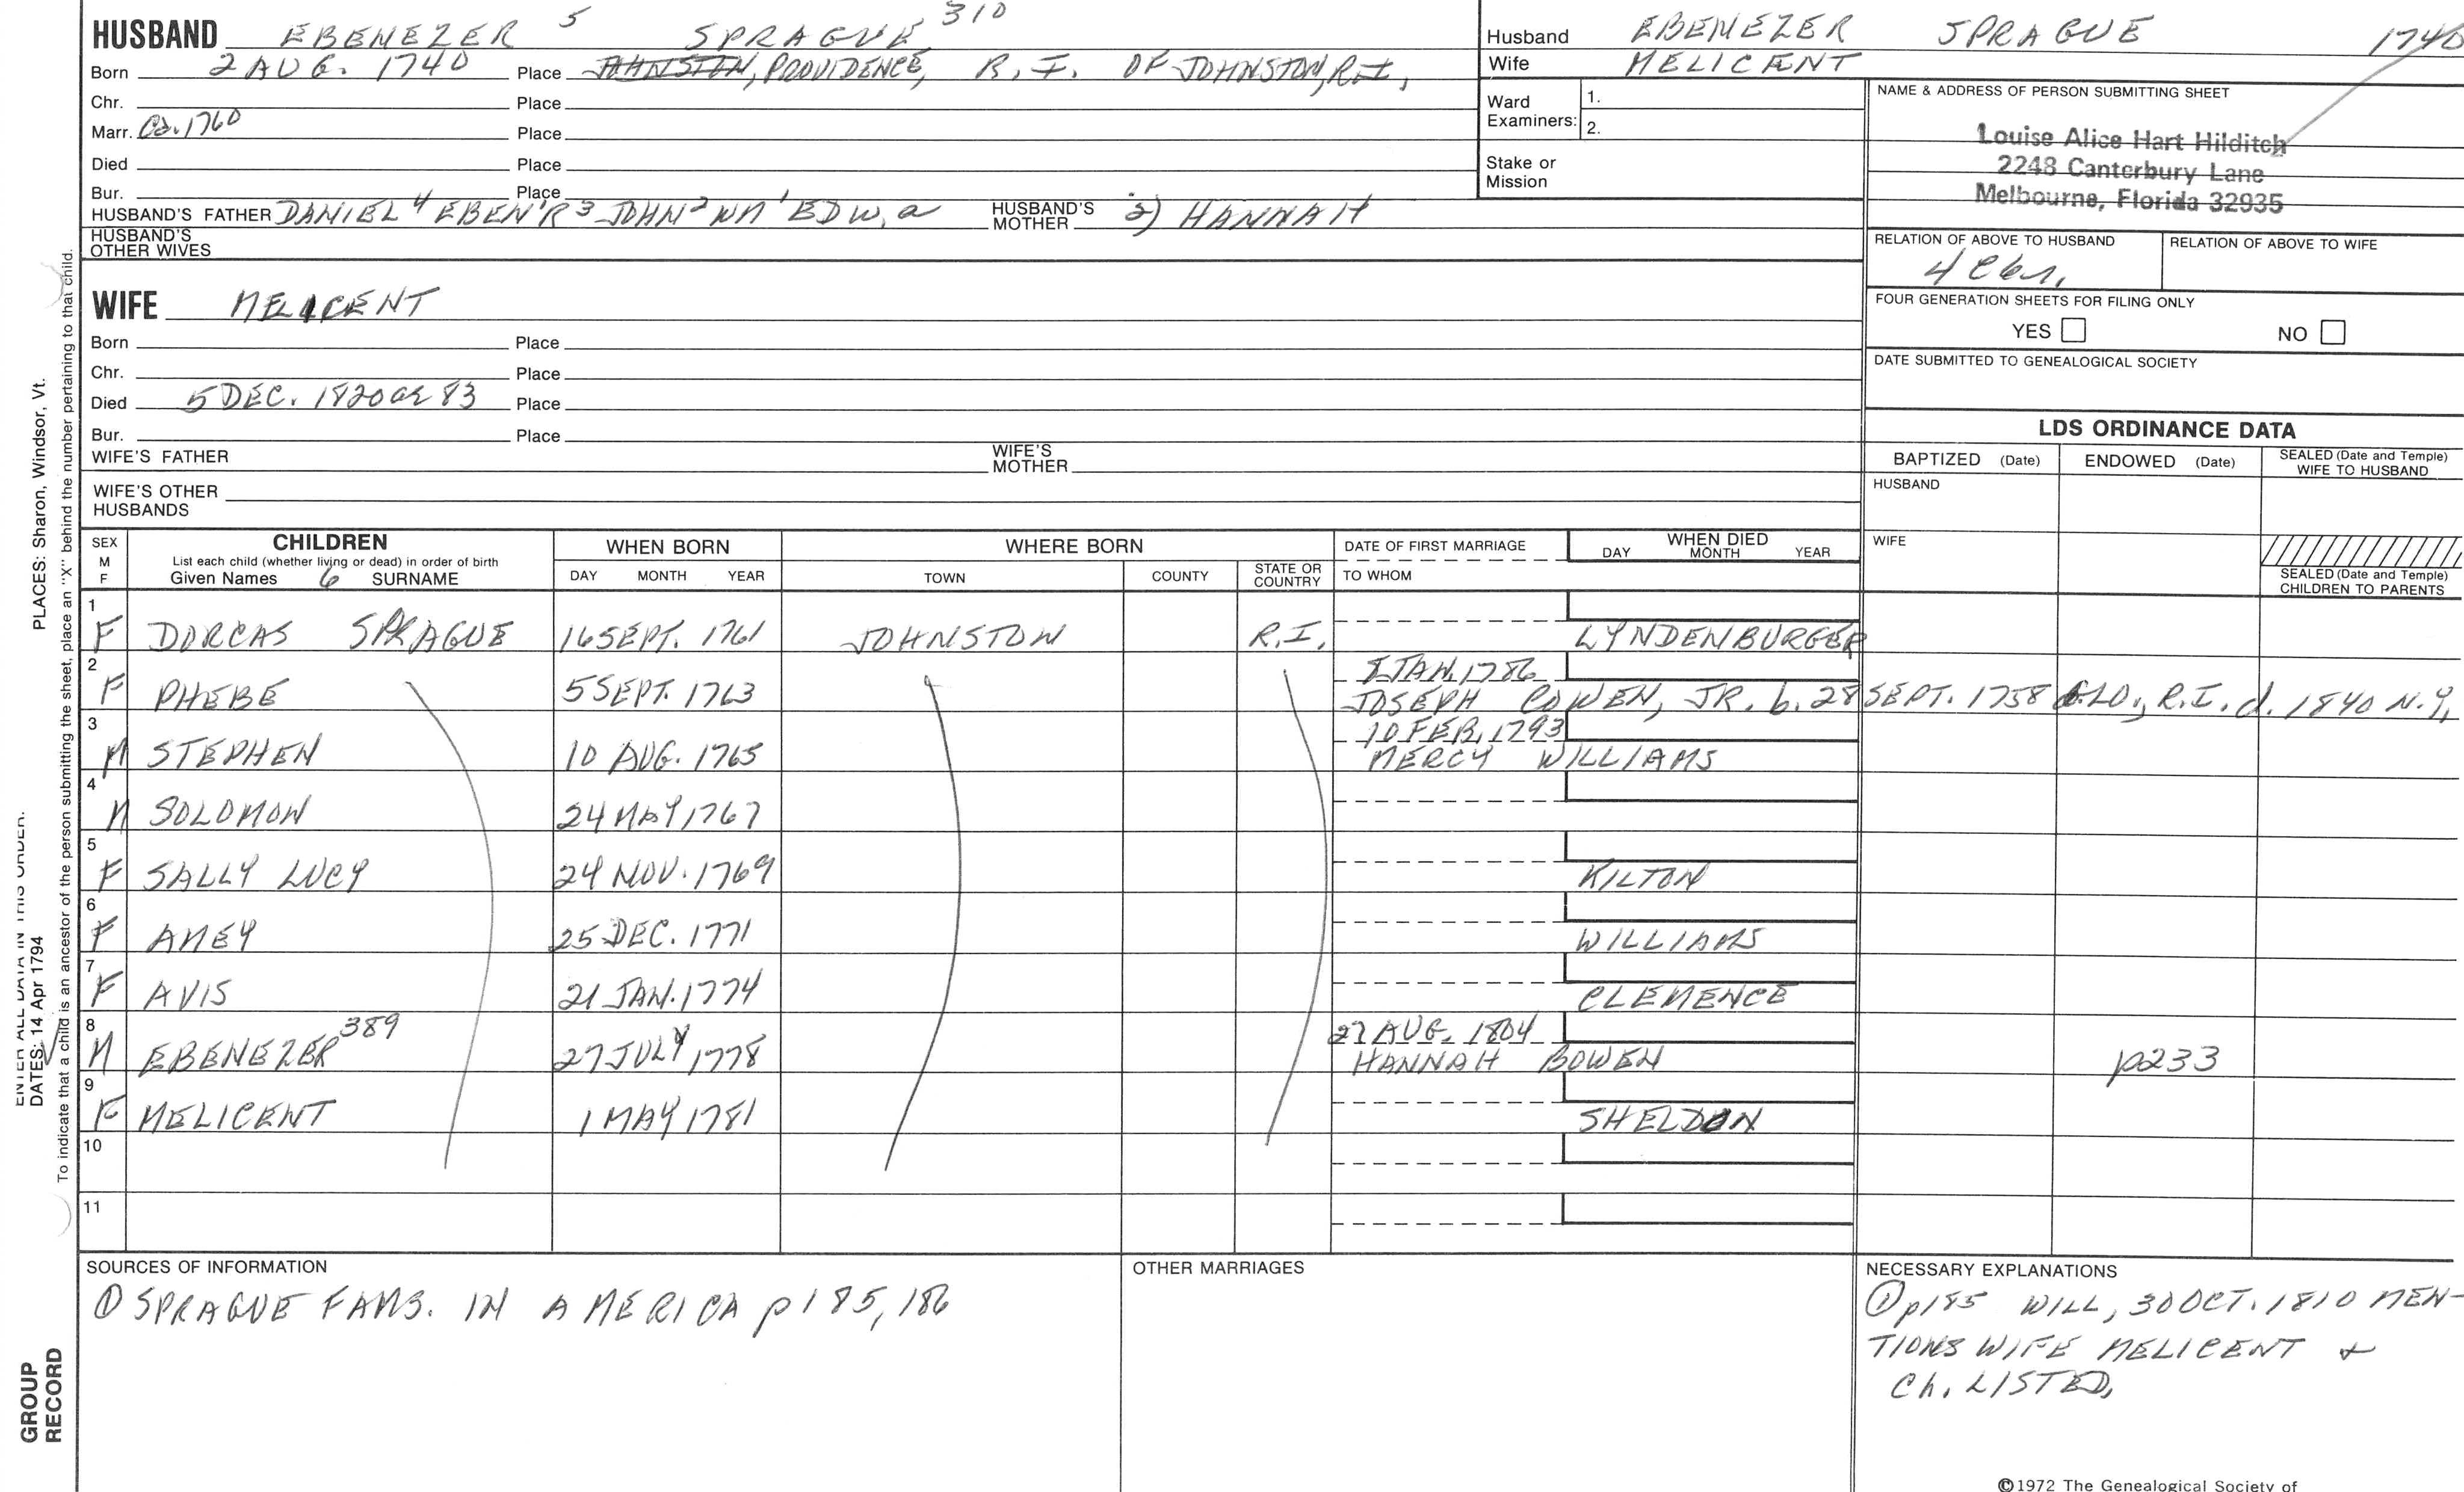 HUSBAND EBENEZER 5 SPRAGUE 310
Born 2 AUG. 1740 Place JOHNSTON, PROVIDENCE, R.I. OF JOHNSTON, R.I.
Chr. Place
Marr. Ca. 1760 Place
Died Place
Bur. Place
HUSBAND'S FATHER DANIEL 4 EBEN'R 3 JOHN 2 WM 1 EDW. a HUSBAND'S MOTHER 2) HANNAH
HUSBAND'S OTHER WIVES
Husband EBENEZER SPRAGUE 1740
Wife MELICENT
Ward Examiners: 1.
2.
Stake or Mission
NAME & ADDRESS OF PERSON SUBMITTING SHEET
Louise Alice Hart Hilditch
2248 Canterbury Lane
Melbourne, Florida 32935
RELATION OF ABOVE TO HUSBAND RELATION OF ABOVE TO WIFE
FOUR GENERATION SHEETS FOR FILING ONLY
YES NO
DATE SUBMITTED TO GENEALOGICAL SOCIETY
WIFE MELICENT
Born Place
Chr. Place
Died 5 DEC. 1820 or 83 Place
Bur. Place
WIFE'S FATHER WIFE'S MOTHER
WIFE'S OTHER HUSBANDS
LDS ORDINANCE DATA
BAPTIZED (Date) ENDOWED (Date) SEALED (Date and Temple) WIFE TO HUSBAND
HUSBAND
WIFE
SEALED (Date and Temple) CHILDREN TO PARENTS
SEX M F CHILDREN WHEN BORN WHERE BORN DATE OF FIRST MARRIAGE WHEN DIED
List each child (whether living or dead) in order of birth
Given Names 6 SURNAME DAY MONTH YEAR TOWN COUNTY STATE OR COUNTRY TO WHOM DAY MONTH YEAR
1 F DORCAS SPRAGUE 16 SEPT. 1761 JOHNSTON R.I. LYNDENBURGER
2 F PHEBE 5 SEPT. 1763 JAN. 1786
JOSEPH COWEN, JR. b. 28 SEPT. 1758 GLO., R.I. d. 1840 N.Y.
3 M STEPHEN 10 AUG. 1765 10 FEB. 1793
MERCY WILLIAMS
4 M SOLOMON 24 MAY 1767
5 F SALLY LUCY 24 NOV. 1769 KILTON
6 F AMEY 25 DEC. 1771 WILLIAMS
7 F AVIS 21 JAN. 1774 CLEMENCE
8 M EBENEZER 389 27 JULY 1778 27 AUG. 1804
HANNAH BOWEN p233
9 F MELICENT 1 MAY 1781 SHELDON
10
11
SOURCES OF INFORMATION
① SPRAGUE FAMS. IN AMERICA p 185, 186
OTHER MARRIAGES
NECESSARY EXPLANATIONS
① p185 WILL, 30 OCT. 1810 MEN-
TIONS WIFE MELICENT &
Ch. LISTED.
©1972 The Genealogical Society of
ENTER ALL DATA IN THIS ORDER:
DATES: 14 Apr 1794 PLACES: Sharon, Windsor, Vt.
To indicate that a child is an ancestor of the person submitting the sheet, place an "X" behind the number pertaining to that child.
GROUP
RECORD